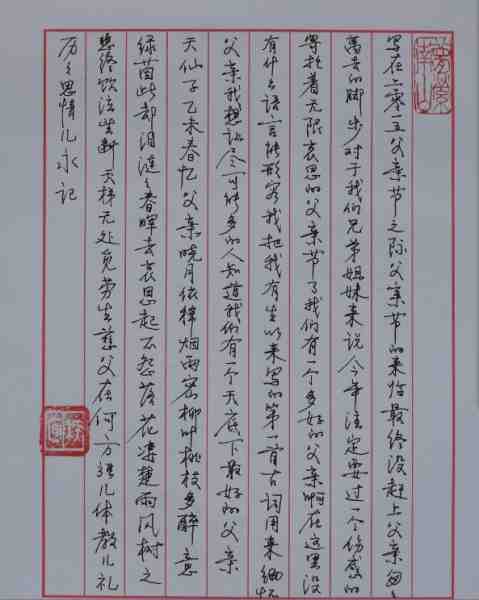 写在二零一五父亲节之际父亲节的来临最终没赶上父亲匆匆
离去的脚步对于我们兄弟姐妹来说今年注定要过一个伤感的
寄托着无限哀思的父亲节了我们有一个多好的父亲啊在这里没
有什么语言能形容我把我有生以来写的第一首古词用来缅怀
父亲我想让尽可能多的人知道我们有一个天底下最好的父亲
天仙子乙未春忆父亲晓月依稀烟雨密柳叶桃枝多醉意
绿茵此却泪涟涟春晖去哀思起不怨落花凄楚雨风树之
悲终饮泣坐断天梯无处觅劳生慈父在何方强儿体教儿礼
历历思情儿永记